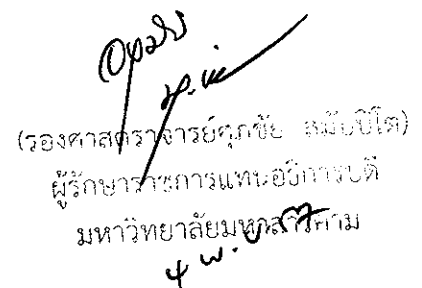 อนุมัติ
(รองศาสตราจารย์ศุภชัย สมัปปิโต)
ผู้รักษาราชการแทนอธิการบดี
มหาวิทยาลัยมหาสารคาม
๔ พ.ย. ๕๗